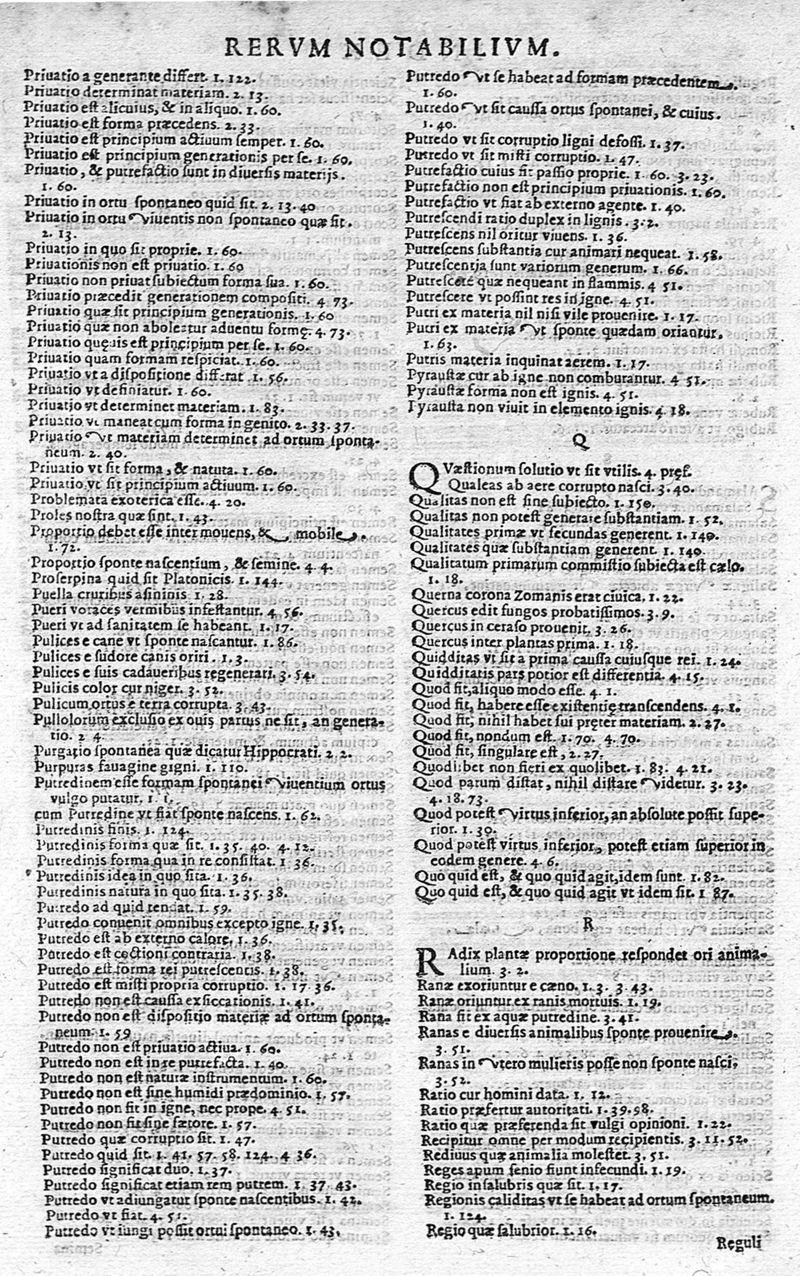 RERVM NOTABILIVM.
Priuatio a generante differt. 1. 122.
Priuatio determinat materiam. 2. 13.
Priuatio est alicuius, & in aliquo. 1. 60.
Priuatio est forma præcedens. 2. 33.
Priuatio est principium actiuum semper. 1. 60.
Priuatio est principium generationis per se. 1. 60.
Priuatio, & putrefactio sunt in diuersis materijs.
1. 60.
Priuatio in ortu spontaneo quid sit. 2. 13. 40
Priuatio in ortu viuentis non spontaneo quæ sit.
2. 13.
Priuatio in quo sit proprie. 1. 60.
Priuationis non est priuatio. 1. 60
Priuatio non priuat subiectum forma sua. 1. 60.
Priuatio præcedit generationem compositi. 4. 73.
Priuatio quæ sit principium generationis. 1. 60
Priuatio quæ non aboleatur aduentu formę. 4. 73.
Priuatio quęuis est principium per se. 1. 60.
Priuatio quam formam respiciat. 1. 60.
Priuatio vt a dispositione differat 1. 56.
Priuatio vt definiatur. 1. 60.
Priuatio vt determinet materiam. 1. 83.
Priuatio vt maneat cum forma in genito. 2. 33. 37.
Priuatio vt materiam determinet ad ortum sponta-
neum. 2. 40.
Priuatio vt sit forma, & natura. 1. 60.
Priuatio vt sit principium actiuum. 1. 60.
Problemata exoterica esse. 4. 20.
Proles nostra quæ sint. 1. 43.
Proportio debet esse inter mouens, & mobile.
1. 72.
Proportio sponte nascentium, & semine. 4. 4.
Proserpina quid sit Platonicis. 1. 144.
Puella cruribus asininis 1. 28.
Pueri voraces vermibus infestantur. 4. 56.
Pueri vt ad sanitatem se habeant. 1. 17.
Pulices e cane vt sponte nascantur. 1. 86.
Pulices e sudore canis oriri. 1. 3.
Pulices e suis cadaueribus regenerari. 3. 54.
Pulicis color cur niger. 3. 52.
Pulicum ortus e terra corrupta. 3. 43.
Pullolorum exclusio ex ouis partus ne sit, an genera-
tio. 2 4.
Purgatio spontanea quæ dicatur Hippocrati. 2. 2.
Purpuras fauagine gigni. 1. 110.
Putredinem esse formam spontanei viuentium ortus
vulgo putatur. 1.
cum Putredine vt fiat sponte nascens. 1. 62.
Putredinis finis. 1. 124.
Putredinis forma quæ sit. 1. 35. 40. 4. 12.
Putredinis forma qua in re consistat. 1 36.
Putredinis idea in quo sita. 1. 36.
Putredinis natura in quo sita. 1. 35. 38.
Putredo ad quid tendat. 1. 59.
Putredo conuenit omnibus excepto igne. 1. 35.
Putredo est ab externo calore. 1. 36.
Putredo est coctioni contraria. 1. 38.
Putredo est forma rei putrescentis. 1. 38.
Putredo est misti propria corruptio. 1. 17 36.
Putredo non est caussa exsiccationis. 1. 41.
Putredo non est dispositio materiæ ad ortum sponta-
neum. 1. 59
Putredo non est priuatio actiua. 1. 60.
Putredo non est in re putrefacta. 1. 40.
Putredo non est naturæ instrumentum. 1. 60.
Putredo non est sine humidi prædominio. 1. 57.
Putredo non fit in igne, nec prope. 4. 51.
Putredo non fit sine fætore. 1. 57.
Putredo quæ corruptio sit. 1. 47.
Putredo quid sit. 1. 41. 57. 58. 124. 4 36.
Putredo significat duo. 1. 37.
Putredo significat etiam rem putrem. 1. 37 43.
Putredo vt adiungatur sponte nascentibus. 1. 42.
Putredo vt fiat. 4. 51.
Putredo vt iungi possit ortui spontaneo. 1. 43.
Putredo vt se habeat ad formam præcedentem.
1. 60.
Putredo vt sit caussa ortus spontanei, & cuius.
1. 40.
Putredo vt sit corruptio ligni defossi. 1. 37.
Putredo vt sit misti corruptio. 1. 47.
Putrefactio cuius sit passio proprie. 1. 60. 3. 23.
Putrefactio non est principium priuationis. 1. 60.
Putrefactio vt fiat ab externo agente. 1. 40.
Putrescendi ratio duplex in lignis. 3. 2.
Putrescens nil oritur viuens. 1. 36.
Putrescens substantia cur animari nequeat. 1. 58.
Putrescentia sunt variorum generum. 1. 66.
Putrescere quæ nequeant in flammis. 4 51.
Putrescere vt possint res in igne. 4. 51.
Putri ex materia nil nisi vile prouenire. 1. 17.
Putri ex materia vt sponte quædam oriantur.
1. 63.
Putris materia inquinat aerem. 1. 17.
Pyraustæ cur ab igne non comburantur. 4 51.
Pyraustæ forma non est ignis. 4. 51.
Pyrausta non viuit in elemento ignis. 4 18.
Q
QVæstionum solutio vt sit vtilis. 4. pręf.
Qualeas ab aere corrupto nasci. 3. 40.
Qualitas non est sine subiecto. 1. 150.
Qualitas non potest generare substantiam. 1. 52.
Qualitates primæ vt secundas generent. 1. 140.
Qualitates quæ substantiam generent. 1. 140.
Qualitatum primarum commistio subiecta est cælo.
1. 18.
Querna corona Zomanis erat ciuica. 1. 22.
Quercus edit fungos probatissimos. 3. 9.
Quercus in ceraso prouenit. 3. 26.
Quercus inter plantas prima. 1. 18.
Quidditas vt sit a prima caussa cuiusque rei. 1. 24.
Quidditatis pars potior est differentia. 4. 15.
Quod fit, aliquo modo esse. 4. 1.
Quod fit, habere esse existentiæ transcendens. 4. 1.
Quod fit, nihil habet sui pręter materiam. 2. 27.
Quod fit, nondum est. 1. 70. 4. 70.
Quod fit, singulare est, 2. 27.
Quodlibet non fieri ex quolibet. 1. 83. 4. 21.
Quod parum distat, nihil distare videtur. 3. 23.
4. 18. 73.
Quod potest virtus inferior, an absolute possit supe-
rior. 1. 30.
Quod potest virtus inferior, potest etiam superior in
eodem genere. 4. 6.
Quo quid est, & quo quid agit, idem sunt. 1. 82.
Quo quid est, & quo quid agit vt idem sit. 1 87.
R
RAdix plantæ proportione respondet ori anima-
lium. 3. 2.
Ranæ exoriuntur e cæno. 1. 3. 3. 43.
Ranæ oriuntur ex ranis mortuis. 1. 19.
Rana fit ex aquæ putredine. 3. 41.
Ranas e diuersis animalibus sponte prouenire.
3. 51.
Ranas in vtero mulieris posse non sponte nasci.
3. 52.
Ratio cur homini data. 1. 12.
Ratio præfertur autoritati. 1. 39. 98.
Ratio quæ præferenda sit vulgi opinioni. 1. 22.
Recipitur omne per modum recipientis. 3. 11. 52.
Rediuus quæ animalia molestet. 3. 51.
Reges apum senio fiunt infecundi. 1. 19.
Regio insalubris quæ sit. 1. 17.
Regionis caliditas vt se habeat ad ortum spontaneum.
1. 124.
Regio quæ salubrior. 1. 16.
Reguli